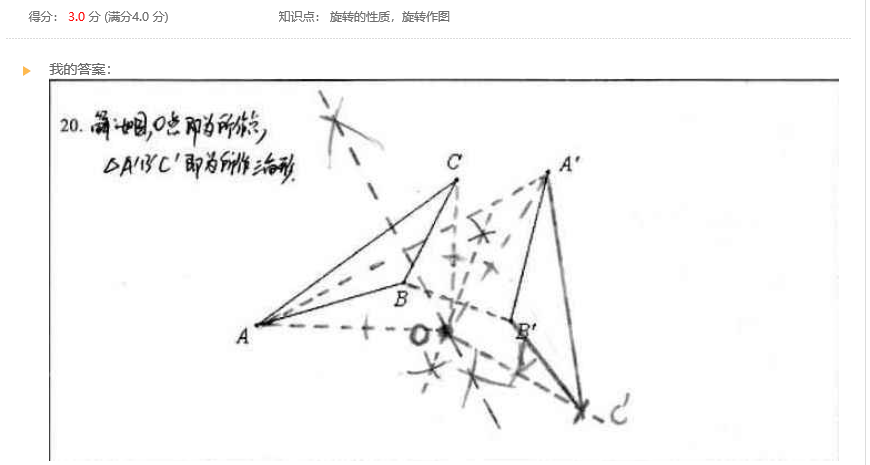 得分： 3.0 分 (满分4.0 分) 知识点： 旋转的性质，旋转作图
我的答案：
20. 解:如图,O点即为所作点,
△A'B'C'即为所作三角形.
C
A'
B
A
O
B'
C'